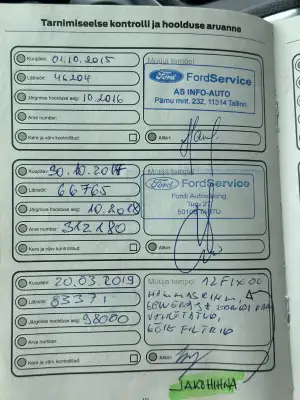 Tarnimiseelse kontrolli ja hoolduse aruanne
Kuupäev: 01.10.2015
Müüja tempel
Läbisõit: 46204
Ford FordService
AS INFO-AUTO
Pärnu mnt. 232, 11314 Tallinn
Järgmise hoolduse aeg: 10.2016
Arve number:
Kere ja värv kontrollitud:
Allkiri:
Kuupäev: 30.10.2017
Müüja tempel
Läbisõit: 66765
Ford FordService
Fordi Autosalong
Turu 27
TARTU
Järgmise hoolduse aeg: 10.2018
Arve number: 312180
Kere ja värv kontrollitud:
Allkiri:
Kuupäev: 20.03.2019
Müüja tempel
Läbisõit: 83371
Järgmise hoolduse aeg: 98000
VAHETATUD,
KÕIK FILTRID
Arve number:
Kere ja värv kontrollitud:
Allkiri: